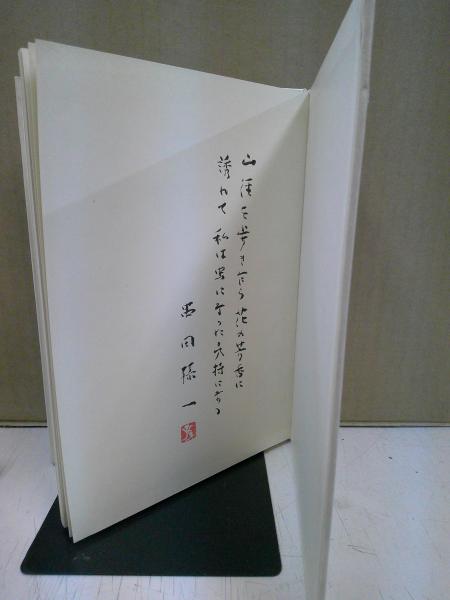 山渓を歩きながら花の芳香に
誘われて私は蝶になった気持になる
岡 一